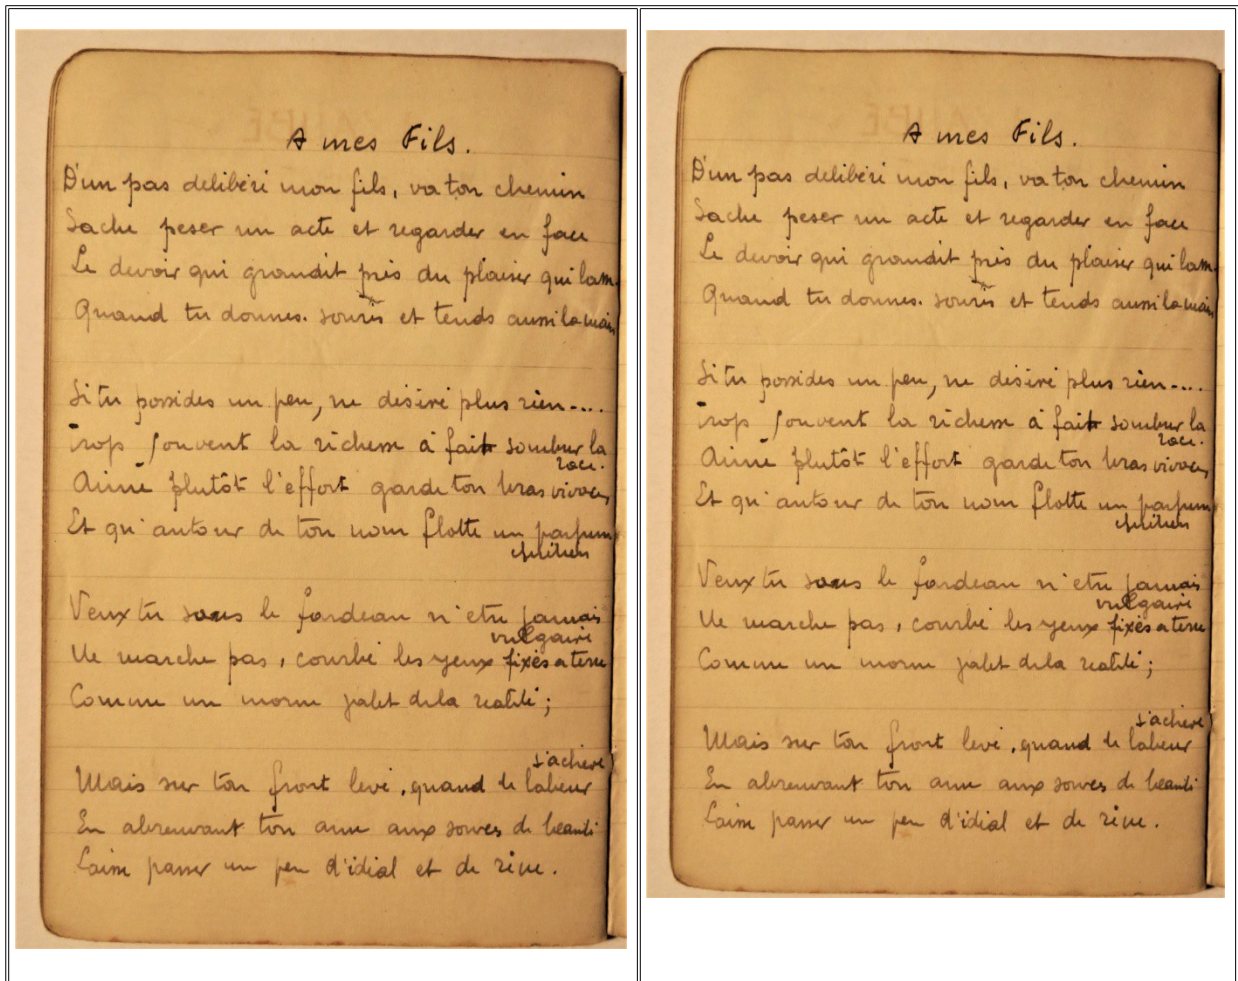 A mes Fils.
D'un pas délibéré mon fils, va ton chemin
Sache peser un acte et regarder en face
Le devoir qui grandit près du plaisir qui lasse
Quand tu donnes. souris et tends aussi la main
Si tu possides un peu, ne désire plus rien....
Trop souvent la richesse à fait sombrer la
race.
Aime plutôt l'effort garde ton bras vivace,
Et qu'autour de ton nom flotte un parfum
chrétien
Veux tu sous le fardeau n'etre jamais
vulgaire
Ne marche pas, courbé les yeux fixés a terre
Comme un morne valet de la réalité;
s'achève
Mais sur ton front levé, quand le labeur
En abreuvant ton ame aux sources de beauté
Laisse passer un peu d'idéal et de rêve.
A mes Fils.
D'un pas délibéré mon fils, va ton chemin
Sache peser un acte et regarder en face
Le devoir qui grandit près du plaisir qui lasse
Quand tu donnes. souris et tends aussi la main
Si tu possides un peu, ne désire plus rien....
Trop souvent la richesse à fait sombrer la
race.
Aime plutôt l'effort garde ton bras vivace,
Et qu'autour de ton nom flotte un parfum
chrétien
Veux tu sous le fardeau n'etre jamais
vulgaire
Ne marche pas, courbé les yeux fixés a terre
Comme un morne valet de la réalité;
s'achève
Mais sur ton front levé, quand le labeur
En abreuvant ton ame aux sources de beauté
Laisse passer un peu d'idéal et de rêve.